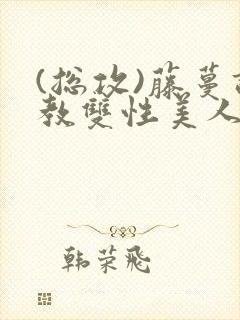 (总攻)藤蔓
教雙性美人
韩荣飛